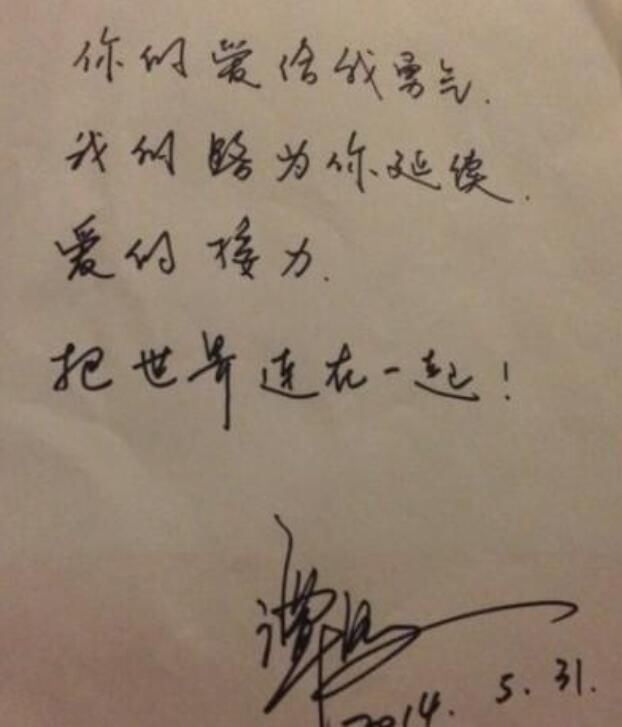 你的爱给我勇气.
我的路为你延续.
爱的接力.
把世界连在一起!
谭
2014. 5. 31.